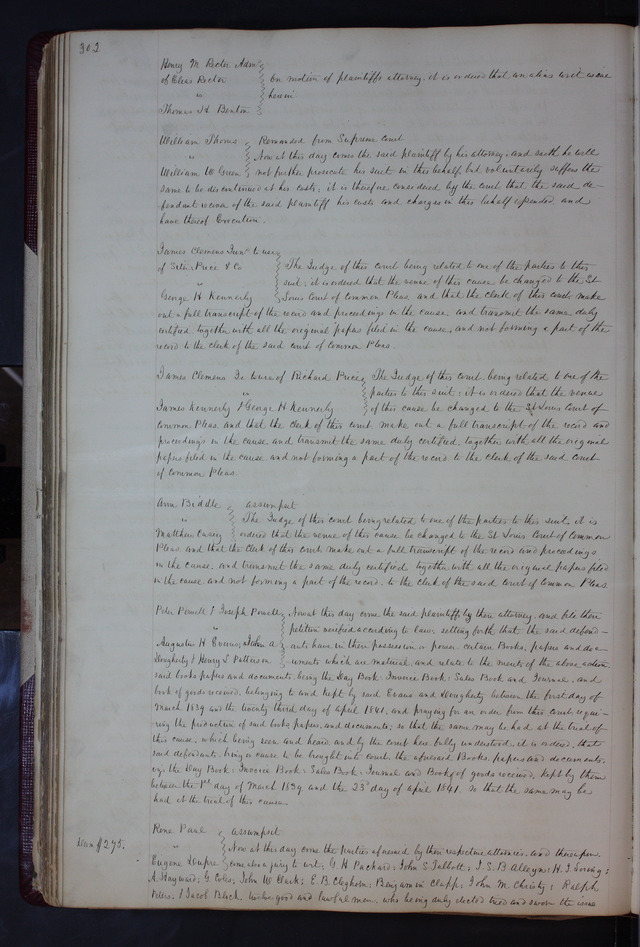 302
Henry M Rector Admr
of Elias Rector } On motion of plaintiffs attorney it is ordered that an alias writ issue
vs herein
Thomas H Benton
William Thomas } Remanded from Supreme Court
vs Now at this day comes the said plaintiff by his attorney and saith he will
William W Green not further prosecute his suit in this behalf, but voluntarily suffers the
same to be discontinued at his costs; it is therefore considered by the court that the said de-
fendant recover of the said plaintiff his costs and charges in this behalf expended and
have thereof Execution.
James Clemens Junr to use
of Siter Price & Co } The Judge of this court being related to one of the parties to this
vs suit; it is ordered that the venue of this cause be changed to the St
George H Kennerly Louis Court of Common Pleas, and that the clerk of this court make
out a full transcript of the record and proceedings in the cause, and transmit the same duly
certified, together with all the original papers filed in the cause, and not forming a part of the
record to the clerk of the said court of Common Pleas.
James Clemens Jr to use of Richard Price } The Judge of this court being related to one of the
vs parties to this suit; it is ordered that the venue
James Kennerly & George H Kennerly of this cause be changed to the St Louis Court of
Common Pleas, and that the clerk of this court make out a full transcript of the record and
proceedings in the cause and transmit the same duly certified, together with all the original
papers filed in the cause and not forming a part of the record to the clerk of the said court
of Common Pleas.
Ann Biddle } assumpsit
vs The Judge of this court being related to one of the parties to this suit, it is
Matthew Carey ordered that the venue of this cause be changed to the St Louis Court of Common
Pleas and that the Clerk of this court make out a full transcript of the record and proceedings
in the cause, and transmit the same duly certified together with all the original papers filed
in the cause and not forming a part of the record, to the clerk of the said court of Common Pleas.
Peter Powell & Joseph Powell } Now at this day come the said plaintiffs by their attorney, and file their
vs petition verified according to law, setting forth that the said defend-
Augustus H Evans, John A ants have in their possession or power certain Books, papers and doc-
Dougherty & Henry S Patterson uments which are material and relate to the merits of the above action
said books papers and documents being the Day Book Invoice Book Sales Book and Journal, and
book of goods received, belonging to and kept by said Evans and Dougherty between the first day of
March 1839 and the twenty third day of april 1841, and praying for an order from this court requi-
ring the production of said books, papers, and documents; so that the same may be had at the trial of
this cause, which being seen and heard, and by the court here fully understood, it is ordered, that
said defendants bring or cause to be brought into court, the aforesaid Books, papers and documents,
viz. the Day Book, Invoice Book, Sales Book, Journal and Book of goods received, kept by them
between the 1st day of March 1839 and the 23d day of april 1841, so that the same may be
had at the trial of this cause.
Rene Paul } assumpsit
vs Now at this day come the parties aforesaid by their respective attornies, and thereupon
Eugene Dupre came also a jury to wit; G. H Packard; John S Talbott; T. S. B Alleyn; H. I. Loring;
A. Hayward; G Coles; John W Clark; E. B. Cleghorn; Benjamin Clapp; John M. Christy; Ralph
Peters; & Jacob Block twelve good and lawful men, who being duly elected tried and sworn the issue